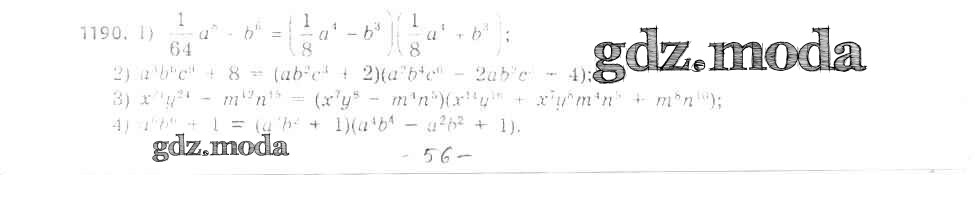 1190. 1) 1/64 a⁸ - b⁶ = (1/8 a⁴ - b³)(1/8 a⁴ + b³);
2) a³b⁶c⁹ + 8 = (ab²c³ + 2)(a²b⁴c⁶ - 2ab²c³ + 4);
gdz.moda
3) x²¹y²⁴ - m¹²n¹⁵ = (x⁷y⁸ - m⁴n⁵)(x¹⁴y¹⁶ + x⁷y⁸m⁴n⁵ + m⁸n¹⁰);
4) a⁶b⁶ + 1 = (a²b² + 1)(a⁴b⁴ - a²b² + 1).
gdz.moda
- 56 -